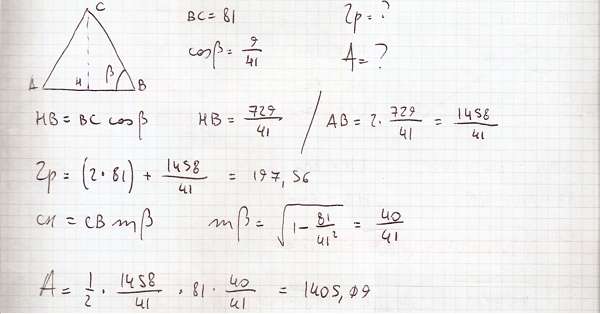 C
BC = 81
2p = ?
cosβ = 9/41
A = ?
A H β B
HB = BC cosβ HB = 729/41 / AB = 2 · 729/41 = 1458/41
2p = (2 · 81) + 1458/41 = 197,56
CH = CB mβ mβ = √(1 - 81/41²) = 40/41
A = 1/2 · 1458/41 · 81 · 40/41 = 1405,09